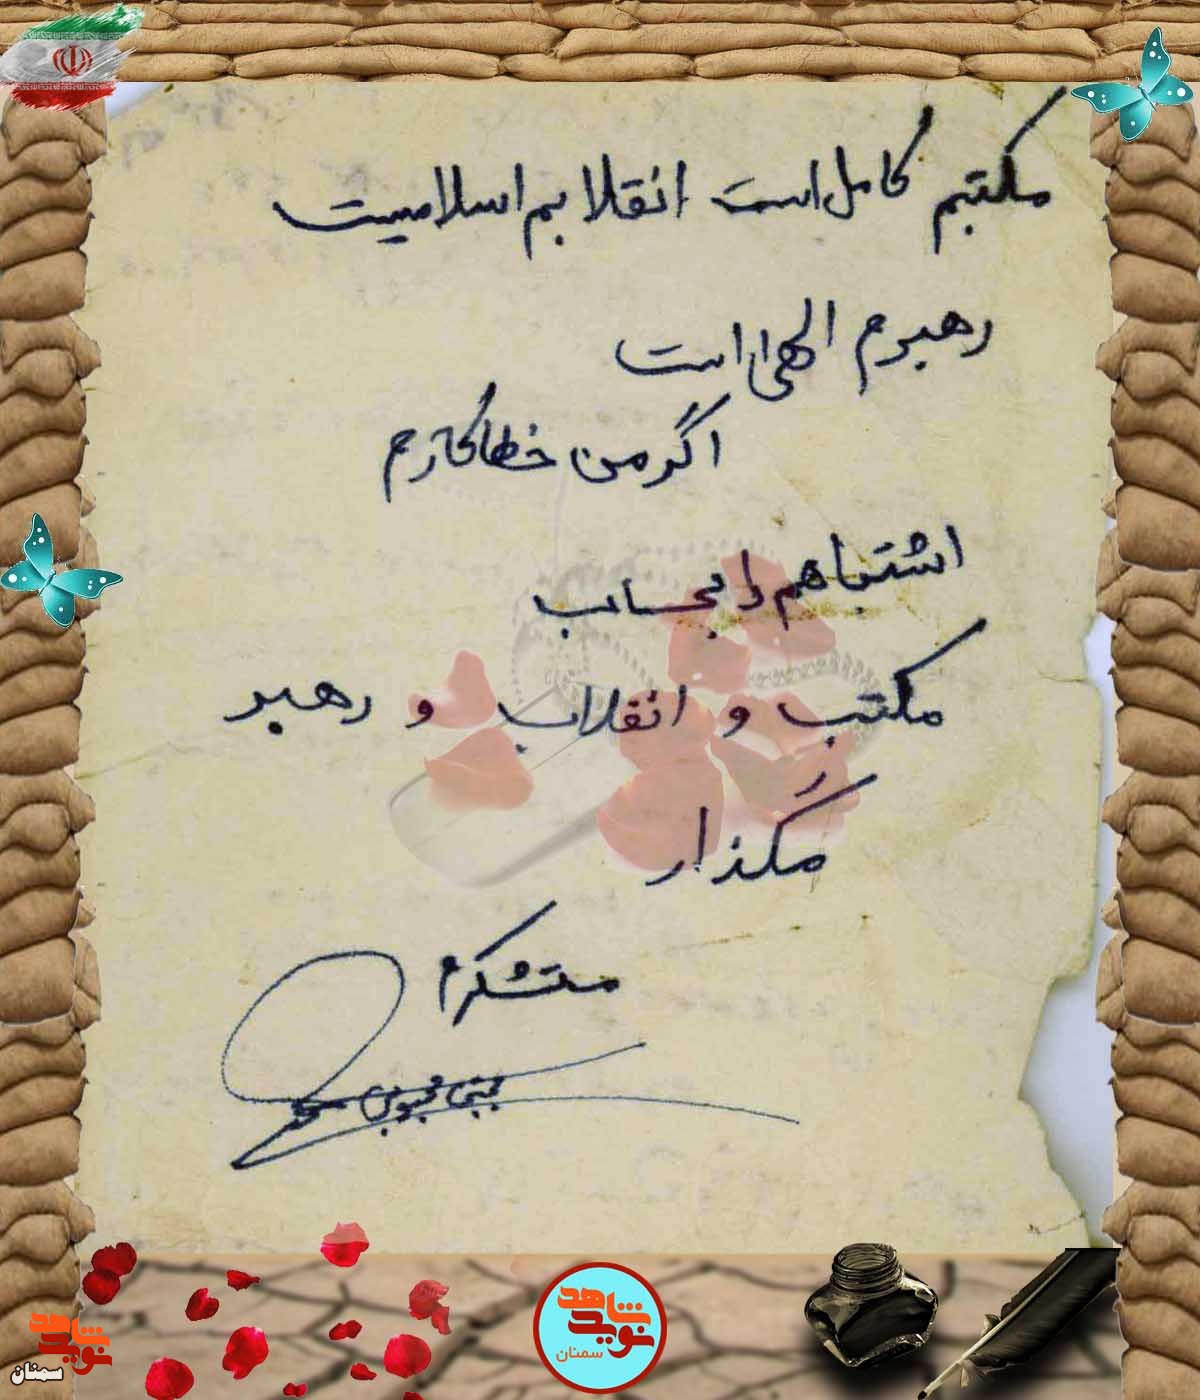 مکتبم کامل است انقلابم اسلامیست
رهبرم الهی است
اگر من خطاکارم
اشتباهم را بحساب
مکتب و انقلاب و رهبر
مگذار
متشکرم
مجتبی
نوید شاهد
سمنان
نوید شاهد
سمنان